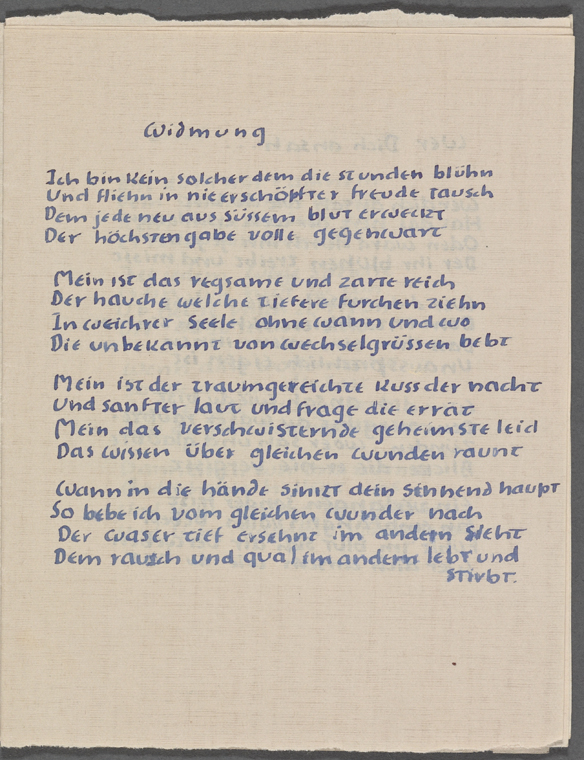 Widmung
Ich bin kein solcher dem die stunden blühn
Und fliehn in nie erschöpfter freude tausch
Dem jede neu aus süssem blut erweckt
Der höchsten gabe volle gegenwart
Mein ist das regsame und zarte reich
Der hauche welche tiefere furchen ziehn
In weichrer seele ohne wann und wo
Die unbekannt von wechselgrüssen bebt
Mein ist der traumgereichte kuss der nacht
Und sanfter laut und frage die errät
Mein das verschwisternde geheimste leid
Das wissen über gleichen wunden raunt
Wann in die hände sinkt dein sinnend haupt
So bebe ich vom gleichen wunder nach
Der was er tief ersehnt im andern sieht
Dem rausch und qual im andern lebt und
stirbt.